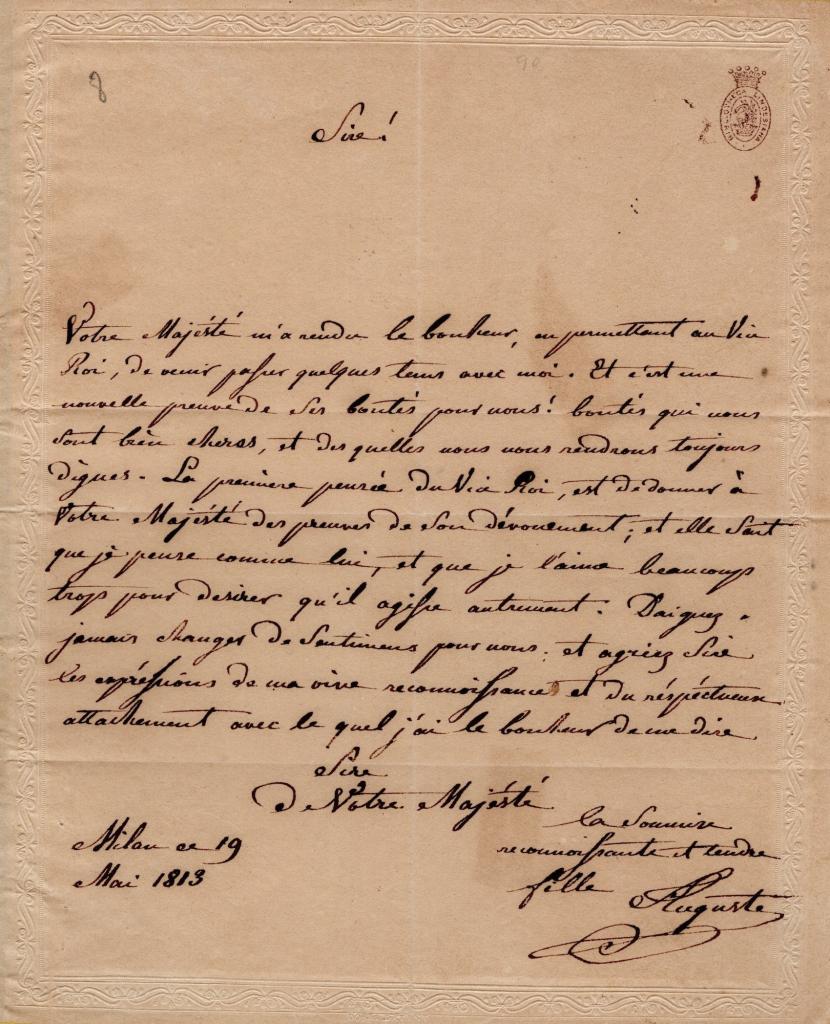 8
90
BIBLIOTHECA LINDESIANA
Sire!
Votre Majésté m'a rendu le bonheur, en permettant au Vice
Roi, de venir passer quelques tems avec moi. Et c'est une
nouvelle preuve de Ses bontés pour nous! bontés qui nous
sont bien cheres, et des quelles nous nous rendrons toujours
dignes. La premiere pensée du Vice Roi, est de donner à
Votre Majésté des preuves de Son dévouement; et elle Sent
que je pense comme lui, et que je l'aime beaucoup
trop pour desirer qu'il agisse autrement. Daignez
jamais changer de Sentimens pour nous, et agréez Sire
les expréssions de ma vive reconnoissance et du réspéctueux
attachement avec le quel j'ai le bonheur de me dire
Sire
De Votre Majésté
la Soumise
reconnoissante et tendre
fille Auguste
Milan ce 19
Mai 1813